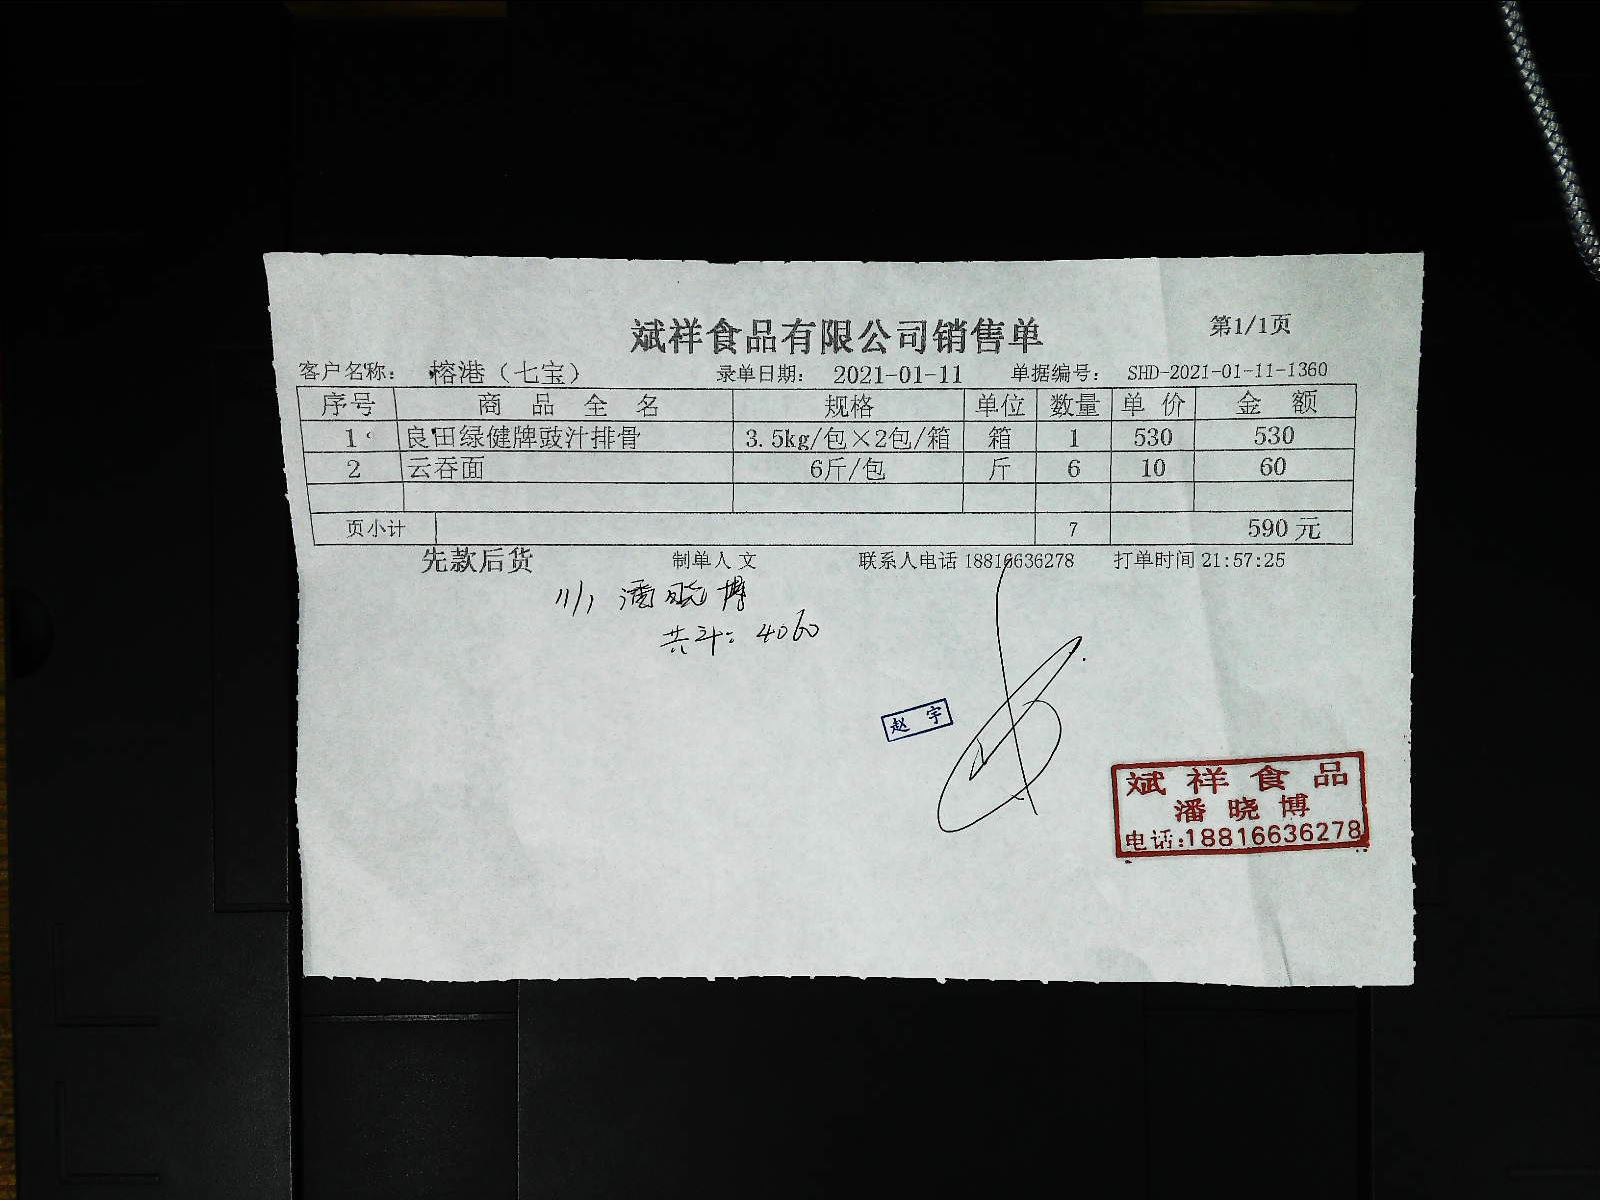 斌祥食品有限公司销售单 第1/1页
客户名称： 榕港（七宝） 录单日期： 2021-01-11 单据编号： SHD-2021-01-11-1360
序号 商品全名 规格 单位 数量 单价 金额
1 良田绿健牌豉汁排骨 3.5kg/包×2包/箱 箱 1 530 530
2 云吞面 6斤/包 斤 6 10 60
页小计 7 590元
先款后货 制单人 文 联系人电话 18816636278 打单时间 21:57:25
11/1 潘晓博
共斗: 4060
赵宇
斌祥食品
潘晓博
电话:18816636278